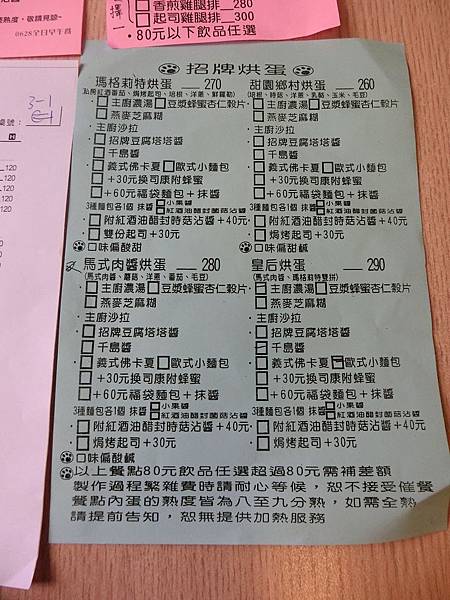 香煎雞腿排__280
起司雞腿排__300
·80元以下飲品任選
擇一
0628全日早午餐
3-1
120
120
120
120
招牌烘蛋
瑪格莉特烘蛋__270
·主廚濃湯 豆漿蜂蜜杏仁穀片
燕麥芝麻糊
·主廚沙拉
招牌豆腐塔塔醬
千島醬
·義式佛卡夏 歐式小麵包
+30元換司康附蜂蜜
+60元福袋麵包+抹醬
3種麵包各1個 抹醬 小果醬
紅酒油醋封菌菇沾醬
·附紅酒油醋封時菇沾醬+40元
·雙份起司+30元
口味偏酸甜
甜園鄉村烘蛋__260
(培根、時菇、洋蔥、乳酪、玉米、毛豆)
·主廚濃湯 豆漿蜂蜜杏仁穀片
燕麥芝麻糊
·主廚沙拉
招牌豆腐塔塔醬
千島醬
·義式佛卡夏 歐式小麵包
+30元換司康附蜂蜜
+60元福袋麵包+抹醬
3種麵包各1個 抹醬 小果醬
紅酒油醋封菌菇沾醬
·附紅酒油醋封時菇沾醬+40元
·焗烤起司+30元
口味偏甜鹹
馬式肉醬烘蛋__280
(馬式肉醬、蘑菇、洋蔥、番茄、毛豆)
·主廚濃湯 豆漿蜂蜜杏仁穀片
燕麥芝麻糊
·主廚沙拉
招牌豆腐塔塔醬
千島醬
·義式佛卡夏 歐式小麵包
+30元換司康附蜂蜜
+60元福袋麵包+抹醬
3種麵包各1個 抹醬 小果醬
紅酒油醋封菌菇沾醬
·附紅酒油醋封時菇沾醬+40元
·焗烤起司+30元
口味偏酸鹹
皇后烘蛋__290
(馬式肉醬、瑪格莉特雙拼)
·主廚濃湯 豆漿蜂蜜杏仁穀片
燕麥芝麻糊
·主廚沙拉
招牌豆腐塔塔醬
千島醬
·義式佛卡夏 歐式小麵包
+30元換司康附蜂蜜
+60元福袋麵包+抹醬
3種麵包各1個 抹醬 小果醬
紅酒油醋封菌菇沾醬
·附紅酒油醋封時菇沾醬+40元
·焗烤起司+30元
以上餐點80元飲品任選超過80元需補差額
製作過程繁雜費時請耐心等候，恕不接受催餐
餐點內蛋的熟度皆為八至九分熟，如需全熟
請提前告知，恕無提供加熱服務